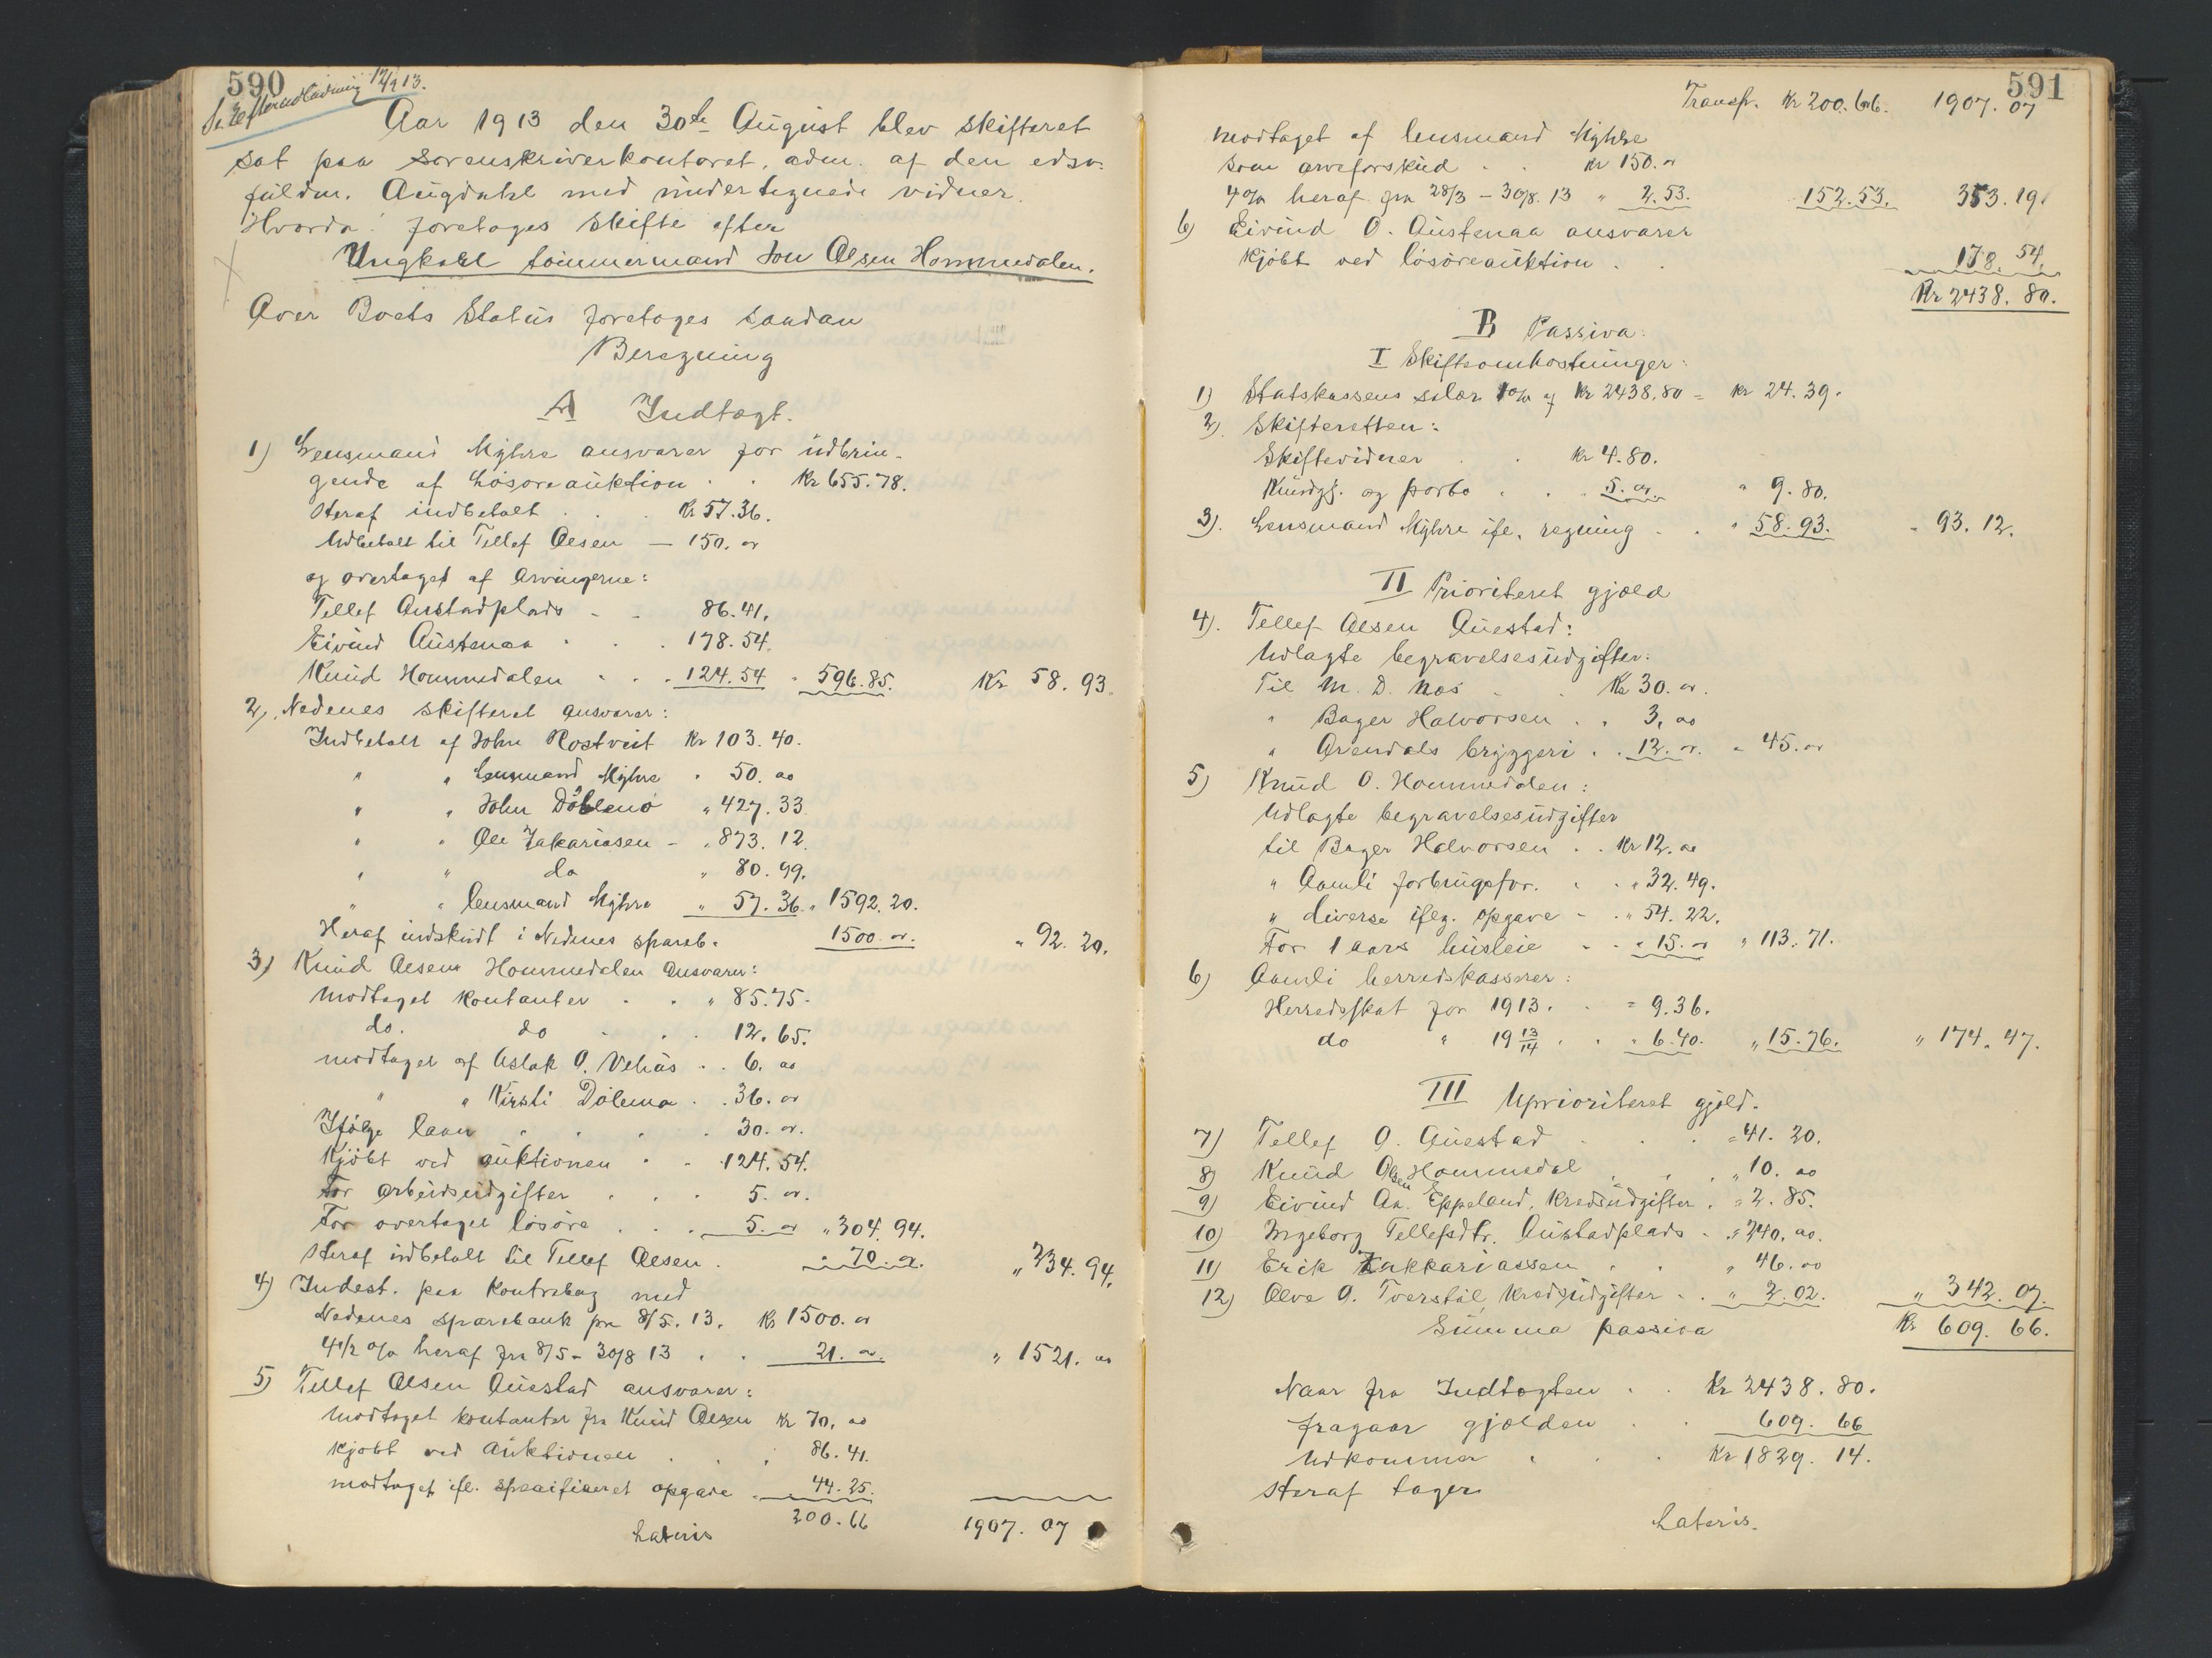 590
Se Efterudlodning 12/9 13.
Aar 1913 den 30te August blev skifteret
sat paa Sorenskriverkontoret, adm. af den edsv.
fuldm. Augdahl med undertegnede vidner.
Hvorda: foretoges Skifte efter
Ungkarl tømmermand Jon Olsen Hommedalen.
Over Boets Status foretoges saadan
Beregning
A Indtægt.
1) Lensmand Myhre ansvarer for udbrin-
gende af Løsøreauktion . . Kr 655.78.
Heraf indbetalt . . . Kr 57.36.
Udbetalt til Tellef Olsen — 150. oo
og overtaget af Arvingerne:
Tellef Austadplads - - 86.41.
Eivind Austenaa . . . 178.54.
Knud Hommedalen . . . 124.54 " 596.85. Kr 58.93.
2) Nedenes skifteret ansvarer:
Indbetalt af John Rostveit Kr 103.40.
" " Lensmand Myhre " 50. oo
" " John Dølemo " 427.33
" " Ole Zakariasen - " 873.12.
" " do " 80.99.
" " Lensmand Myhre " 57.36. " 1592.20.
Heraf indskudt i Nedenes spareb. 1500. oo. " 92.20.
3) Knud Olsen Hommedalen ansvarer:
Modtaget kontanter . . " 85.75.
do. do . . . 12.65.
modtaget af Aslak O. Vehus . . 6. oo
" " Kirsti Dølemo . . 36. oo
Ifølge laan . . . . 30. oo.
Kjøbt ved auktionen . . 124.54.
For arbeidsudgifter . . . 5. oo.
For overtaget løsøre . . . 5. oo " 304.94.
Heraf indbetalt til Tellef Olsen . " 70. oo. " 234.94.
4) Indest. paa Kontrabog med
Nedenes sparebank pr 8/5. 13. Kr 1500. oo
4 1/2 o/o heraf fra 8/5 - 30/8 13 . . 21. oo. " 1521. oo
5) Tellef Olsen Auestad ansvarer:
Modtaget kontanter fra Knud Olsen Kr 70. oo
Kjøbt ved Auktionen . . . 86.41.
modtaget ifl. specificeret opgave . 44.25.
Lateris 200.66 1907.07
591
Transp. Kr 200.66. 1907.07
Modtaget af lensmand Myhre
som arveforskud . . Kr 150. oo
4 o/o heraf fra 28/3 - 30/8. 13 " 2.53. 152.53. 353.19.
6) Eivind O. Austenaa ansvarer
Kjøbt ved løsøreauktion . . 178.54.
Kr 2438.80.
B Passiva.
I Skifteomkostninger:
1) Statskassens salær 1 o/o af Kr 2438.80 = Kr 24.39.
2) Skifteretten:
Skiftevidner . . Kr 4.80.
Kundgj. og porto . . . 5. oo. " 9.80.
3). Lensmand Myhre ifl. regning . . " 58.93. " 93.12.
II Prioriteret gjæld
4). Tellef Olsen Auestad:
Udlagte begravelsesudgifter:
Til M. D. Næs . . Kr 30. oo.
" Bager Halvorsen . . 3. oo
" Arendals bryggeri . . 12. oo. " 45. oo
5) Knud O. Hommedalen:
Udlagte begravelsesudgifter
til Bager Halvorsen . . Kr 12. oo
" Aamli forbrugsfor. . . " 32.49.
" diverse ifl. opgave - . " 54.22.
For 1 aars husleie . . " 15. oo " 113.71.
6) Aamli herredskasserer:
Herredsskat for 1913. . = 9.36.
do " 19 13/14 . . " 6.40. " 15.76. " 174.47.
III Uprioriteret gjæld.
7) Tellef O. Auestad . . . " 41.20.
8) Knud Olsen Hommedal . . . " 10. oo
9) Eivind Aa. Eppeland, Kredsudgifter . " 2.85.
10) Ingeborg Tellefsdtr. Austadplads . " 240. oo.
11) Erik Zakkariassen . . " 46. oo
12) Olve O. Tverstøl, Kredsudgifter . . " 2.02. " 342.07.
Summa passiva Kr 609.66.
Naar fra Indtægten . . Kr 2438.80.
fragaar gjælden . . 609.66
Udkommer . . . Kr 1829.14.
Heraf tager
Lateris.